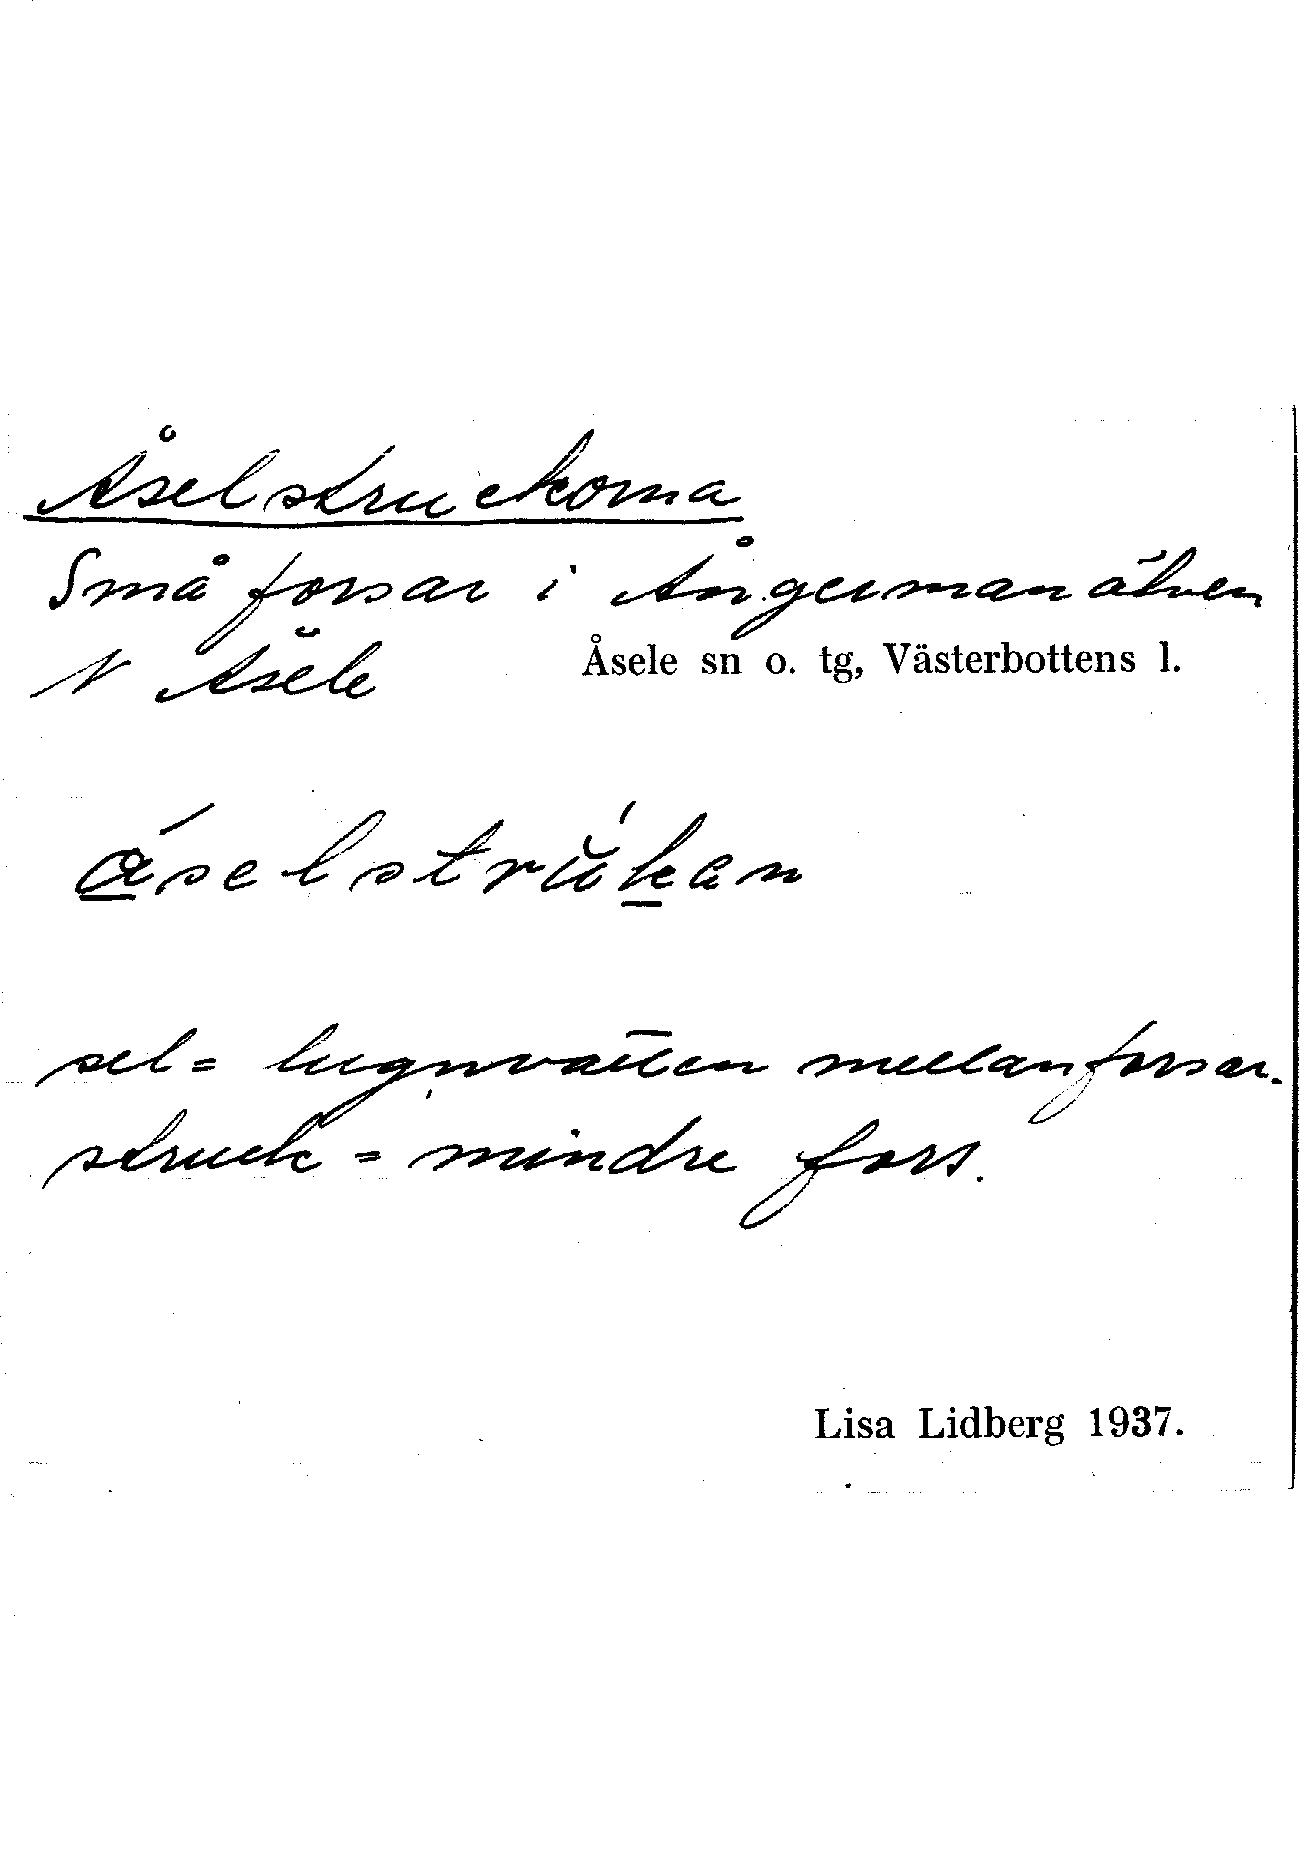 Åselstruckorna
Små forsar i Ångermanälven
N Åsele
Åsele sn o. tg, Västerbottens l.
åselstrŭkan
sel = lugnvatten mellan forsar.
struck = mindre fors.
Lisa Lidberg 1937.